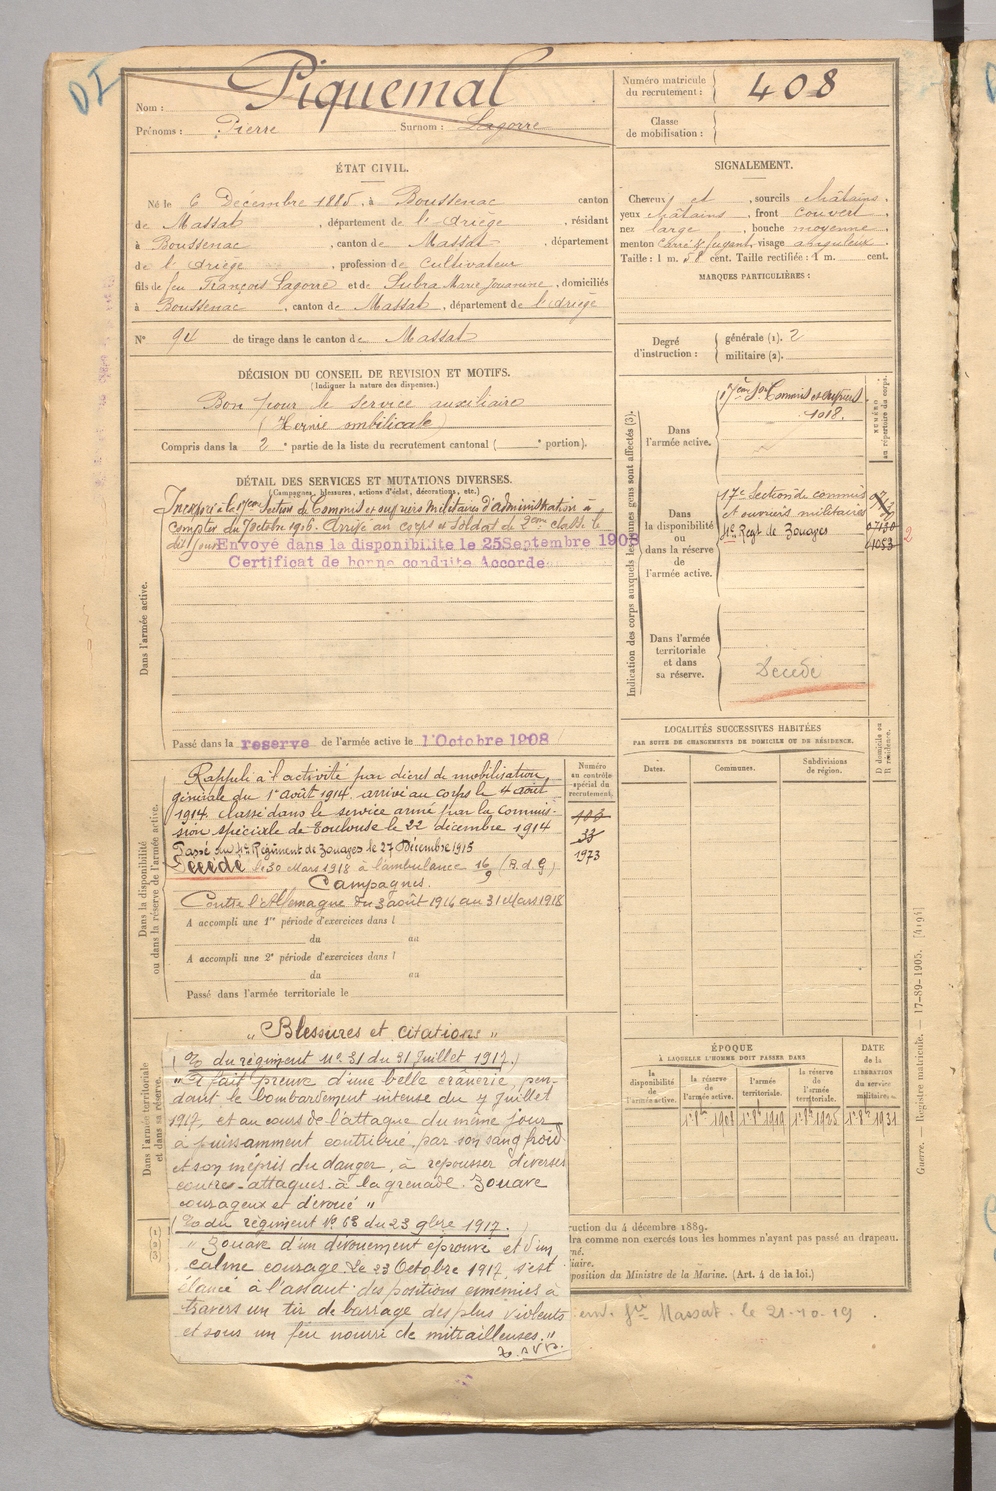 DI
Nom : Piquemal
Prénoms : Pierre Surnom : Lagorre
Numéro matricule du recrutement : 408
Classe de mobilisation :
ÉTAT CIVIL.
Né le 6 Décembre 1885, à Boussenac canton
de Massat, département de l'Ariège, résidant
à Boussenac, canton de Massat, département
de l'Ariège, profession de cultivateur
fils de feu François Lagorre et de Subra Marie Jouanine, domiciliés
à Boussenac, canton de Massat, département de l'Ariège
N° 94 de tirage dans le canton de Massat
SIGNALEMENT.
Cheveux et , sourcils châtains,
yeux châtains, front couvert,
nez large, bouche moyenne,
menton carré & fuyant, visage anguleux.
Taille : 1 m. 58 cent. Taille rectifiée : 1 m. cent.
MARQUES PARTICULIÈRES :
Degré d'instruction : générale (1). 2
militaire (2).
DÉCISION DU CONSEIL DE REVISION ET MOTIFS.
(Indiquer la nature des dispenses.)
Bon pour le service auxiliaire
(Hernie ombilicale)
Compris dans la 2e partie de la liste du recrutement cantonal ( e portion).
DÉTAIL DES SERVICES ET MUTATIONS DIVERSES.
(Campagnes, blessures, actions d'éclat, décorations, etc.)
Incorporé à la 17eme Section de Commis et ouvriers Militaires d'administration à
compter du 7 octobre 1906. Arrivé au corps et soldat de 2eme classe le
dit jour
Envoyé dans la disponibilite le 25 Septembre 1908
Certificat de bonne conduite Accorde
Dans l'armée active.
Passé dans la reserve de l'armée active le 1 Octobre 1908
Indication des corps auxquels les jeunes gens sont affectés (3).
NUMÉRO au répertoire du corps.
Dans l'armée active.
17ème Son Commis et ouvriers
1018.
Dans la disponibilité ou dans la réserve de l'armée active.
17e Section de commis
et ouvriers militaires
4e Regt de Zouages
07130
1053
2
Dans l'armée territoriale et dans sa réserve.
Décédé
LOCALITÉS SUCCESSIVES HABITÉES
PAR SUITE DE CHANGEMENTS DE DOMICILE OU DE RÉSIDENCE.
Dates. Communes. Subdivisions de région.
D. domicile ou R. résidence.
Dans la disponibilité ou dans la réserve de l'armée active.
Numéro au contrôle spécial du recrutement.
Rappelé à l'activité par décret de mobilisation
générale du 1er août 1914. arrivé au corps le 4 août
1914. classé dans le service armé par la commis-
sion spéciale de Toulouse le 22 décembre 1914
Passé au 4e Régiment de Zouages le 27 Décembre 1915
Décédé le 30 Mars 1918 à l'ambulance 16/9 (A.d.G)
Campagnes.
Contre l'Allemagne du 3 août 1914 au 31 Mars 1918
33
1973
A accompli une 1re période d'exercices dans l
du au
A accompli une 2e période d'exercices dans l
du au
Passé dans l'armée territoriale le
Dans l'armée territoriale et dans sa réserve.
„ Blessures et citations "
( O/ du régiment N° 31 du 31 Juillet 1917.)
" A fait preuve d'une belle crânerie, pen-
dant le bombardement intense du 7 juillet
1917, et au cours de l'attaque du même jour
à puissamment contribué par son sang froid
et son mépris du danger, à repousser diverses
contres-attaques à la grenade. Zouave
courageux et dévoué "
( O/ du régiment N° 68 du 23 9bre 1917. )
" Zouave d'un dévouement éprouvé et d'un
calme courage. Le 23 Octobre 1917, s'est
élancé à l'assaut des positions ennemies à
travers un tir de barrage des plus violents
et sous un feu nourri de mitrailleuses."
T.S.V.P.
ÉPOQUE
À LAQUELLE L'HOMME DOIT PASSER DANS
la disponibilité de l'armée active.
la réserve de l'armée active.
l'armée territoriale.
la réserve de l'armée territoriale.
DATE de la LIBÉRATION du service militaire.
1er 8bre 1908 1er 8bre 1919 1er 8bre 1925 1er 8bre 1931
(1)
(2)
(3)
ruction du 4 décembre 1889.
dra comme non exercés tous les hommes n'ayant pas passé au drapeau.
né.
liaire.
position du Ministre de la Marine. (Art. 4 de la loi.)
Massat le 21-10-19
Guerre. — Registre matricule. — 17-89-1905. [4194]